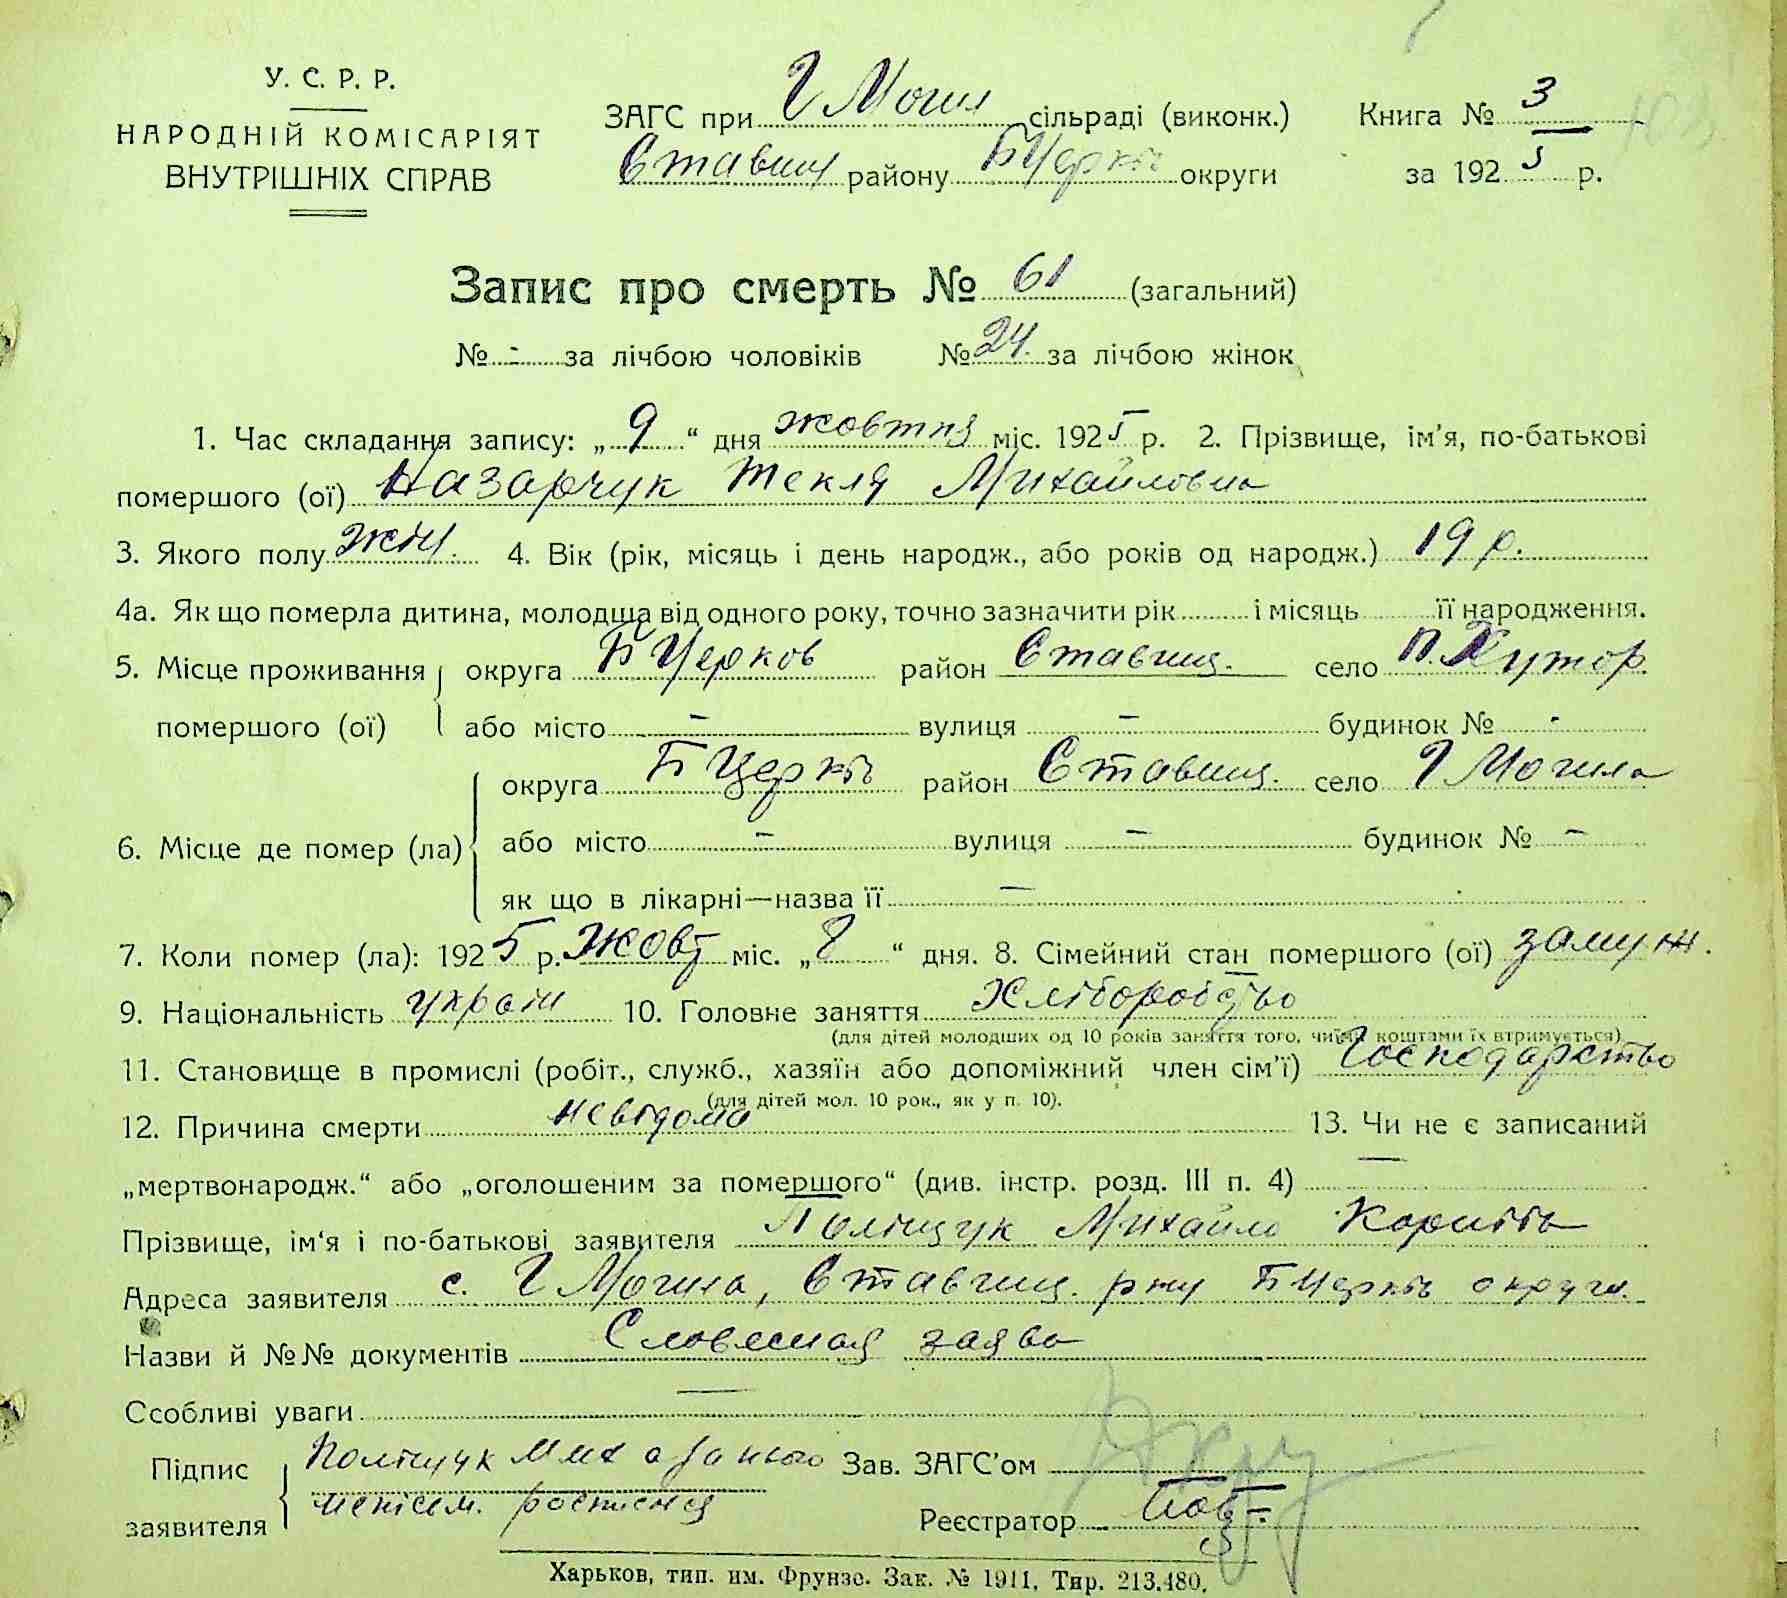 У. С. Р. Р.
НАРОДНІЙ КОМІСАРІЯТ
ВНУТРІШНІХ СПРАВ
ЗАГС при Г Могил сільраді (виконк.) Книга № 3
Ставищ району БЦеркв округи за 1925 р.
Запис про смерть № 61 (загальний)
№ - за лічбою чоловіків № 24. за лічбою жінок
1. Час складання запису: „9“ дня жовтня міс. 1925 р. 2. Прізвище, ім'я, по-батькові
помершого (ої) Назарчук Текля Михайловна
3. Якого полу жін. 4. Вік (рік, місяць і день народж., або років од народж.) 19 р.
4а. Як що померла дитина, молодща від одного року, точно зазначити рік і місяць її народження.
5. Місце проживання округа БЦерков район Ставищ. село П. Хутор.
помершого (ої) або місто - вулиця - будинок № -
округа БЦеркв район Ставищ. село Г Могила
6. Місце де помер (ла) або місто - вулиця - будинок № -
як що в лікарні—назва її -
7. Коли помер (ла): 1925 р. жовт міс. „8“ дня. 8. Сімейний стан помершого (ої) замуж.
9. Національність україн 10. Головне заняття Хліборобство
(для дітей молодших од 10 років заняття того, чиїми коштами їх втримується)
11. Становище в промислі (робіт., служб., хазяїн або допоміжний член сім'ї) Господарство
(для дітей мол. 10 рок., як у п. 10).
12. Причина смерти невідома 13. Чи не є записаний
„мертвонародж.“ або „оголошеним за помершого“ (див. інстр. розд. III п. 4) —
Прізвище, ім'я і по-батькові заявителя Поліщук Михайло
Адреса заявителя с. Г Могила, Ставищ. р-ну БЦеркв округи.
Назви й №№ документів Словесная заява
Особливі уваги —
Підпис Поліщук Мих Зав. ЗАГС'ом
заявителя росписався Реєстратор
Харьков, тип. им. Фрунзе. Зак. № 1911, Тир. 213.480.